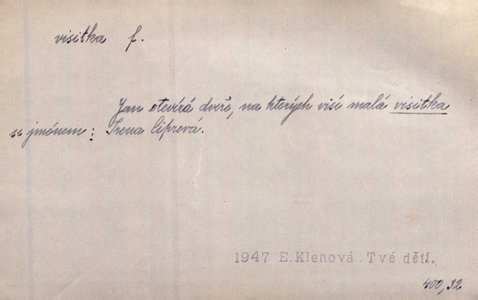 visitka f.
Jan otevírá dveře, na kterých visí malá visitka
se jménem: Irena Ciprová.
1947 E.Klenová: Tvé děti.
400,32